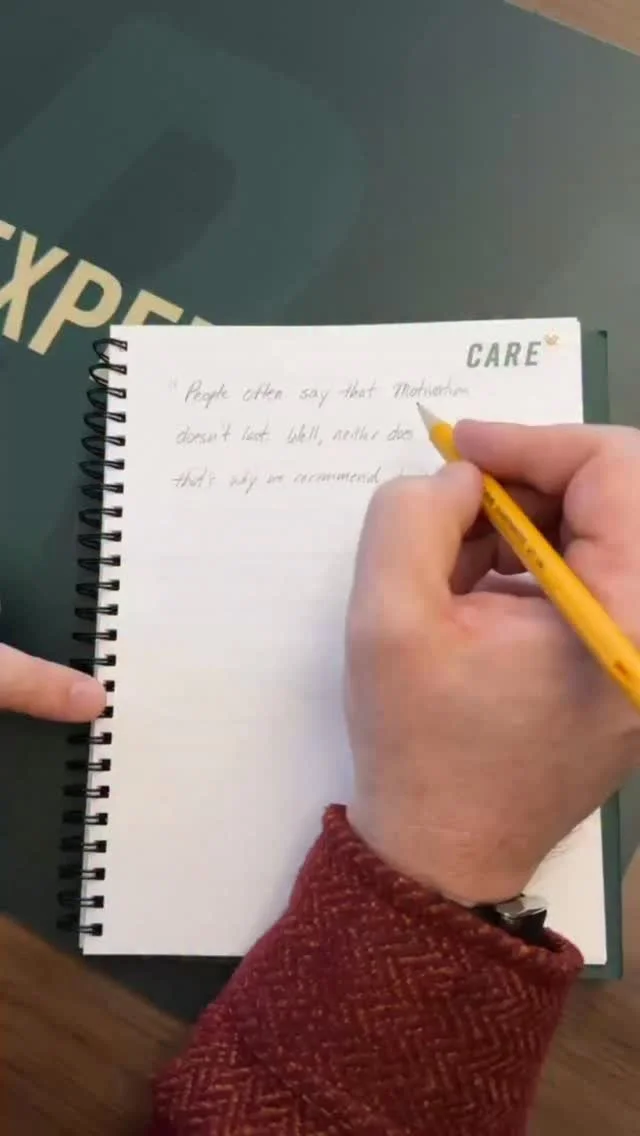 EXPE
CARE
"People often say that Motivation
doesn't last. Well, neither does
that's why we recommend